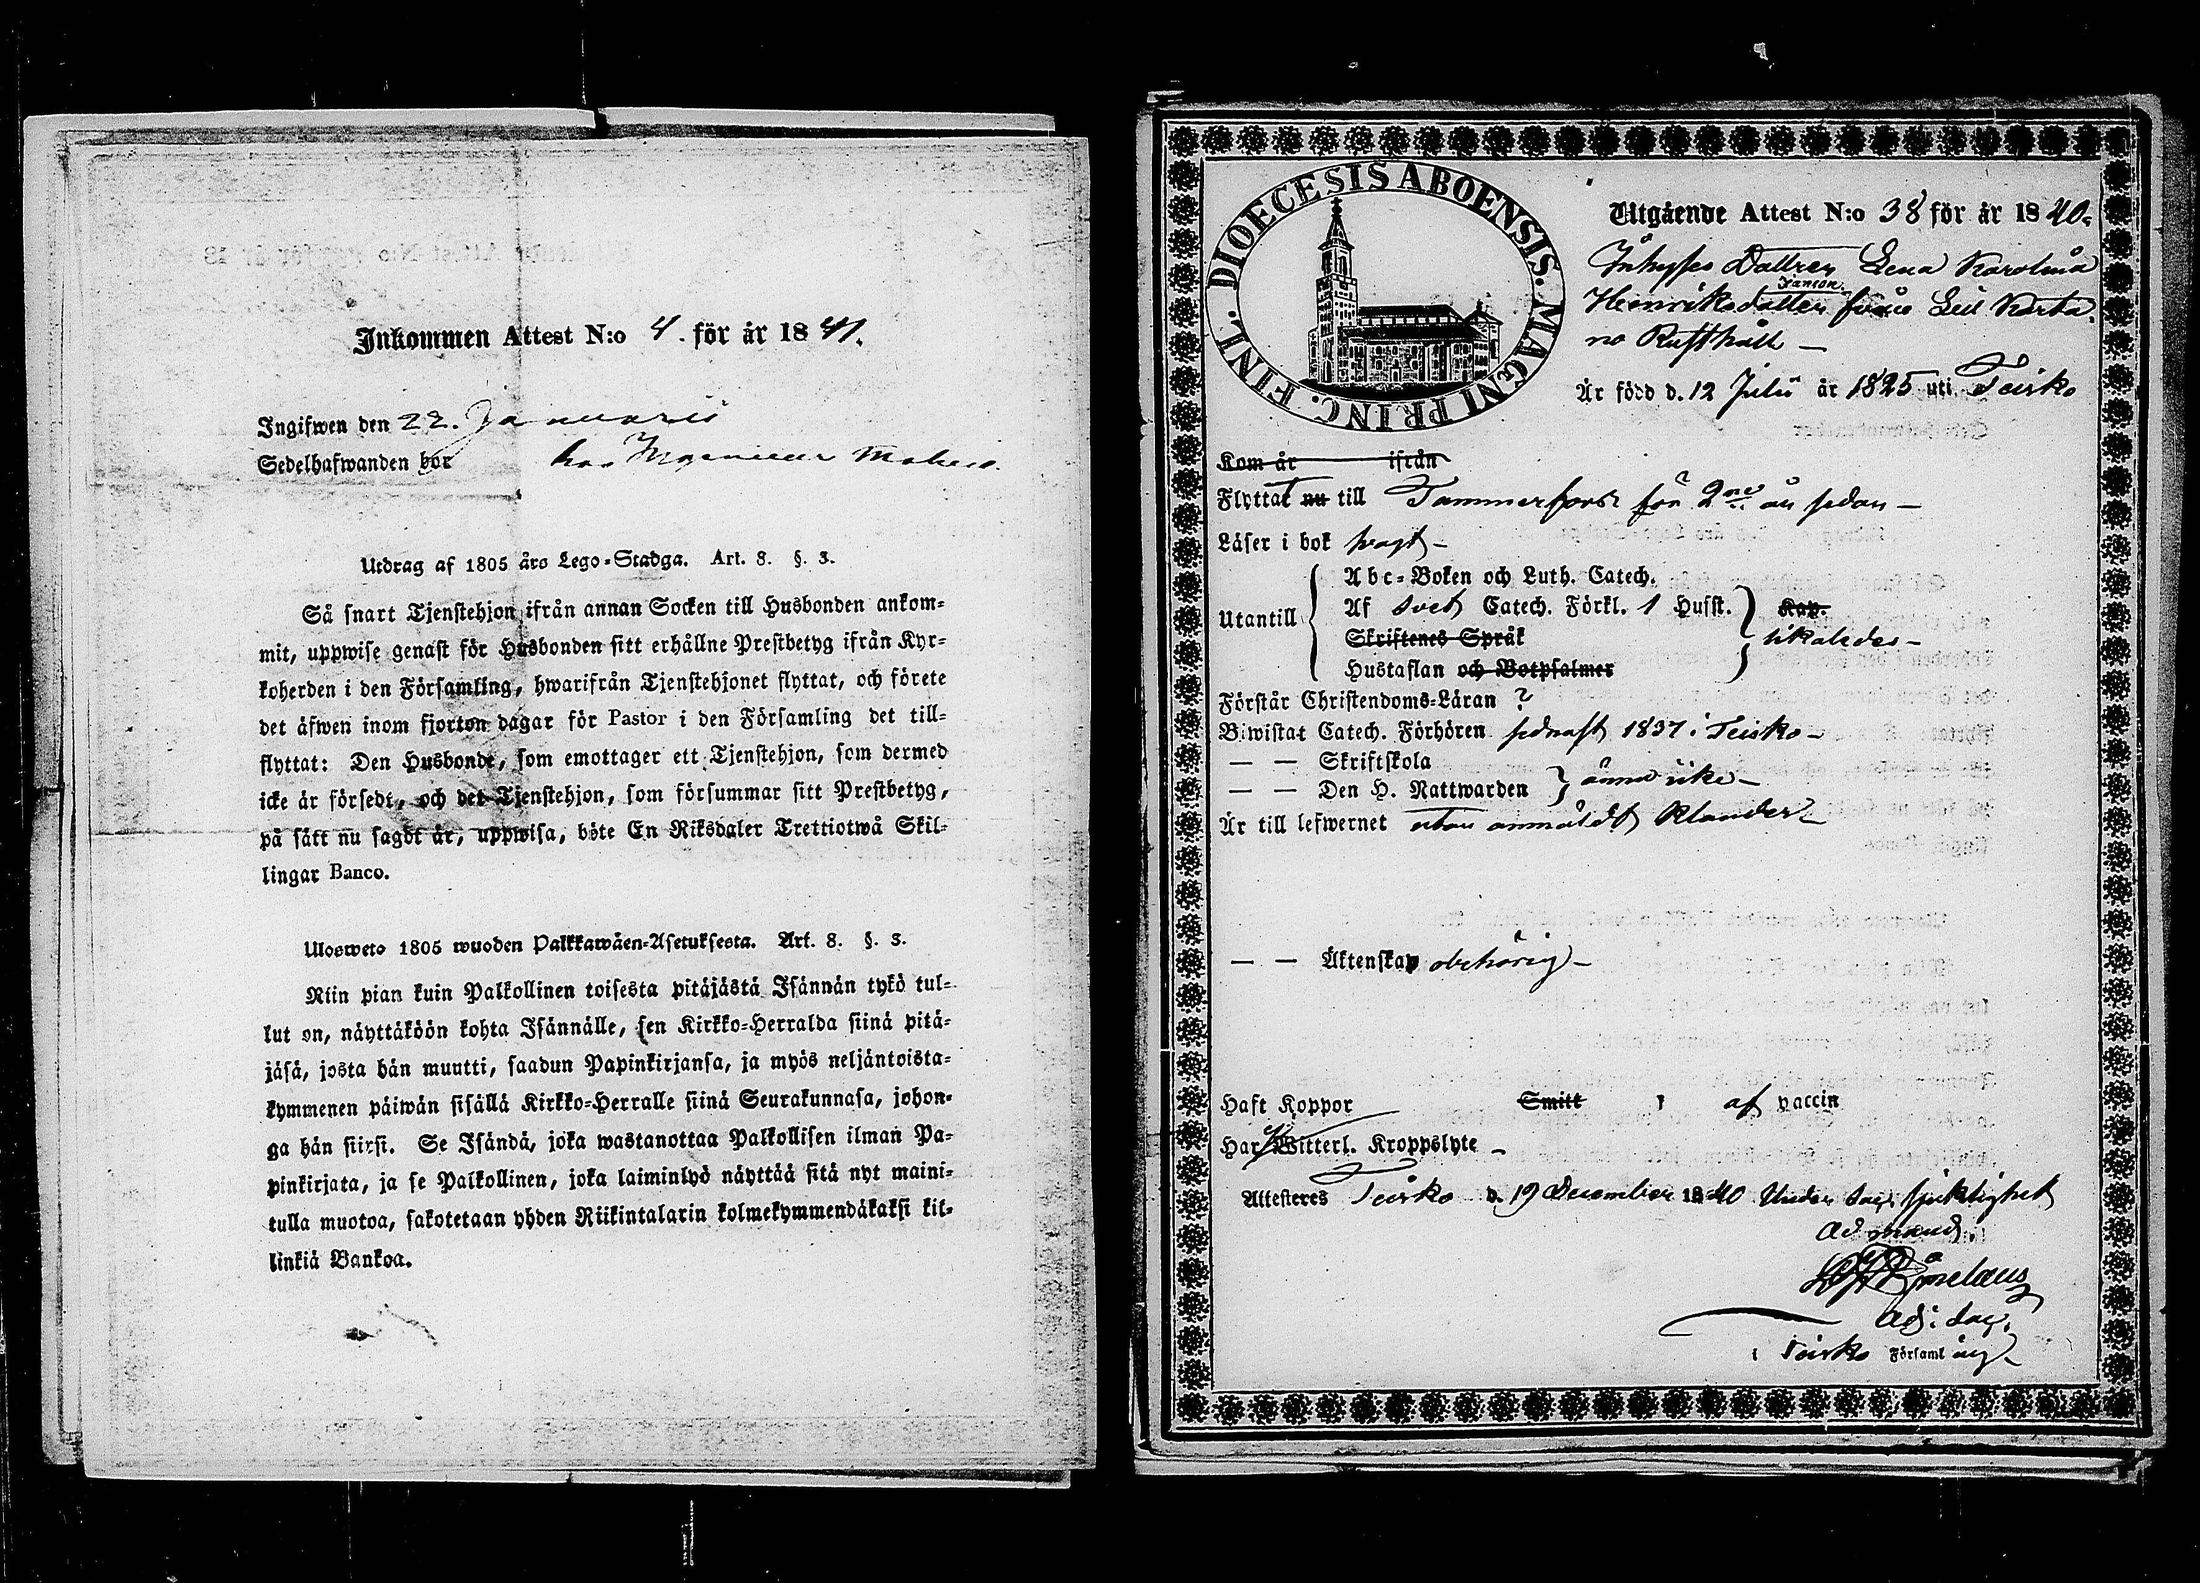 Inkommen Attest N:o 4. för år 1841.
Ingifwen den 22. Januarii
Sedelhafwanden bor hos Ingenieur
Utdrag af 1805 års Lego-Stadga. Art. 8. §. 3.
Så snart Tjenstehjon ifrån annan Socken till Husbonden ankom-
mit, uppwise genast för Husbonden sitt erhållne Prestbetyg ifrån Kyr-
koherden i den Församling, hwarifrån Tjenstehjonet flyttat, och förete
det äfwen inom fjorton dagar för Pastor i den Församling det till-
flyttat: Den Husbonde, som emottager ett Tjenstehjon, som dermed
icke är försedt, och det Tjenstehjon, som försummar sitt Prestbetyg,
på sätt nu sagdt är, uppwisa, böte En Riksdaler Trettiotwå Skil-
lingar Banco.
Ulosweto 1805 wuoden Palkkawäen-Asetuksesta. Art. 8. §. 3.
Niin pian kuin Palkollinen toisesta pitäjästä Isännän tykö tul-
lut on, näyttäköön kohta Isännälle, sen Kirkko-Herralda siinä pitä-
jäsä, josta hän muutti, saadun Papinkirjansa, ja myös neljäntoista-
kymmenen päiwän sisällä Kirkko-Herralle siinä Seurakunnasa, johon-
ga hän siirsi. Se Isändä, joka wastanottaa Palkollisen ilman Pa-
pinkirjata, ja se Palkollinen, joka laiminlyö näyttää sitä nyt maini-
tulla muotoa, sakotetaan yhden Riikintalarin kolmekymmendäkaksi kil-
linkiä Bankoa.
DIOECESIS ABOENSIS. MAGNI PRINC. FINL.
Utgående Attest N:o 38 för år 1840.
Inhyses Dottren Lena Karolina
Henriksdotter från Leil Karta
no Rusthåll —
Är född d. 12 Julii år 1825 uti Teisko
Kom år ifrån
Flyttat nu till Tammerfors för 2ne år sedan —
Läser i bok swagt —
Abc-Boken och Luth. Catech.
Utantill Af Sveb Catech. Förkl. 1 Husst. Kap.
Skriftenes Språk likaledes —
Hustaflan och Botpsalmer
Förstår Christendoms-Läran ?
Biwistat Catech. Förhören sednast 1837 i Teisko —
— — Skriftskola
— — Den H. Nattwarden ännu icke —
Är till lefwernet utan anmäldt klander —
— — Äktenskap obehörig —
Haft Koppor Smitt af vaccin
Har Witterl. Kroppslyte —
Attesteras Teisko d. 19 December 1840 Under Sac. sjuklighet
Ad mand.
Adj: Sac.
i Teisko Församling —